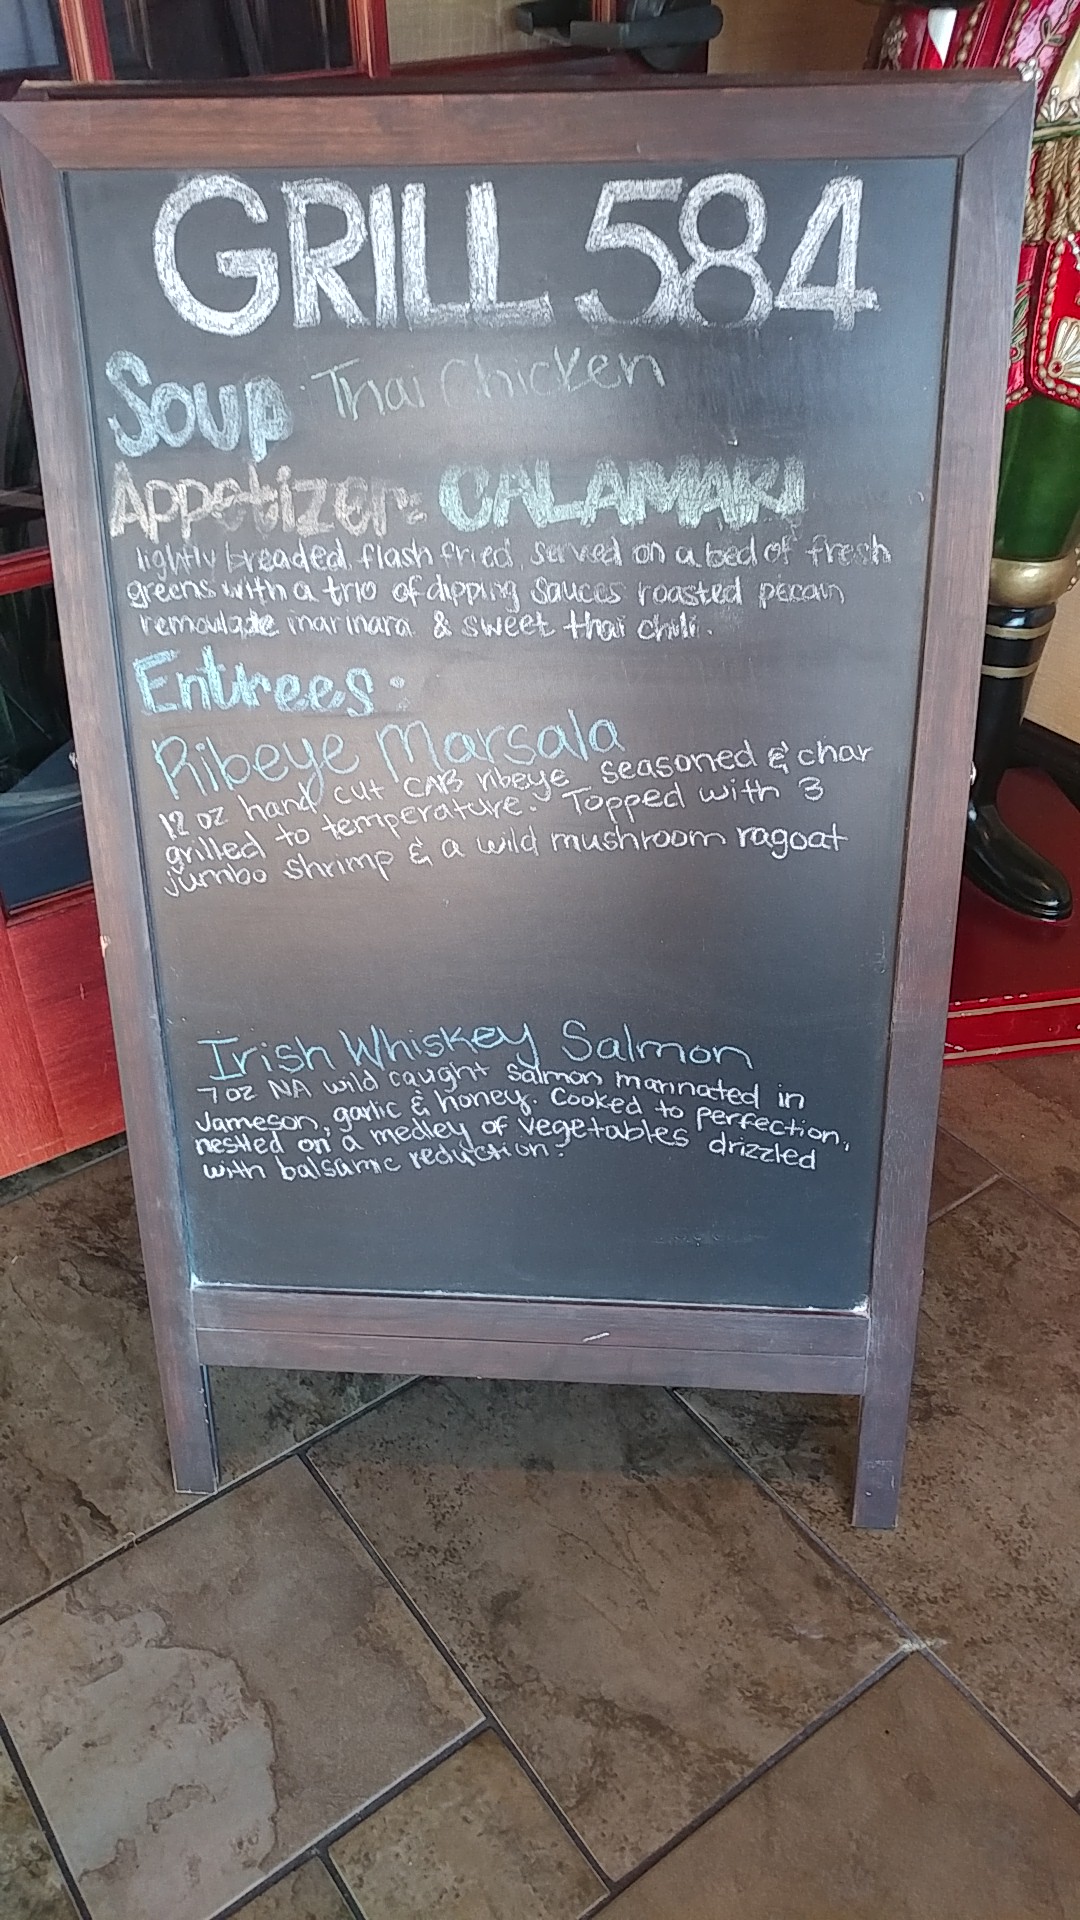 GRILL 584
Soup Thai Chicken
Appetizer: CALAMARI
lightly breaded flash fried, served on a bed of fresh
greens with a trio of dipping sauces roasted pecan
remoulade marinara & sweet thai chili.
Entrees:
Ribeye Marsala
12 oz hand cut CAB ribeye seasoned & char
grilled to temperature. Topped with 3
jumbo shrimp & a wild mushroom ragoat
Irish Whiskey Salmon
7 oz NA wild caught salmon marinated in
Jameson, garlic & honey. Cooked to perfection,
nestled on a medley of vegetables drizzled
with balsamic reduction.